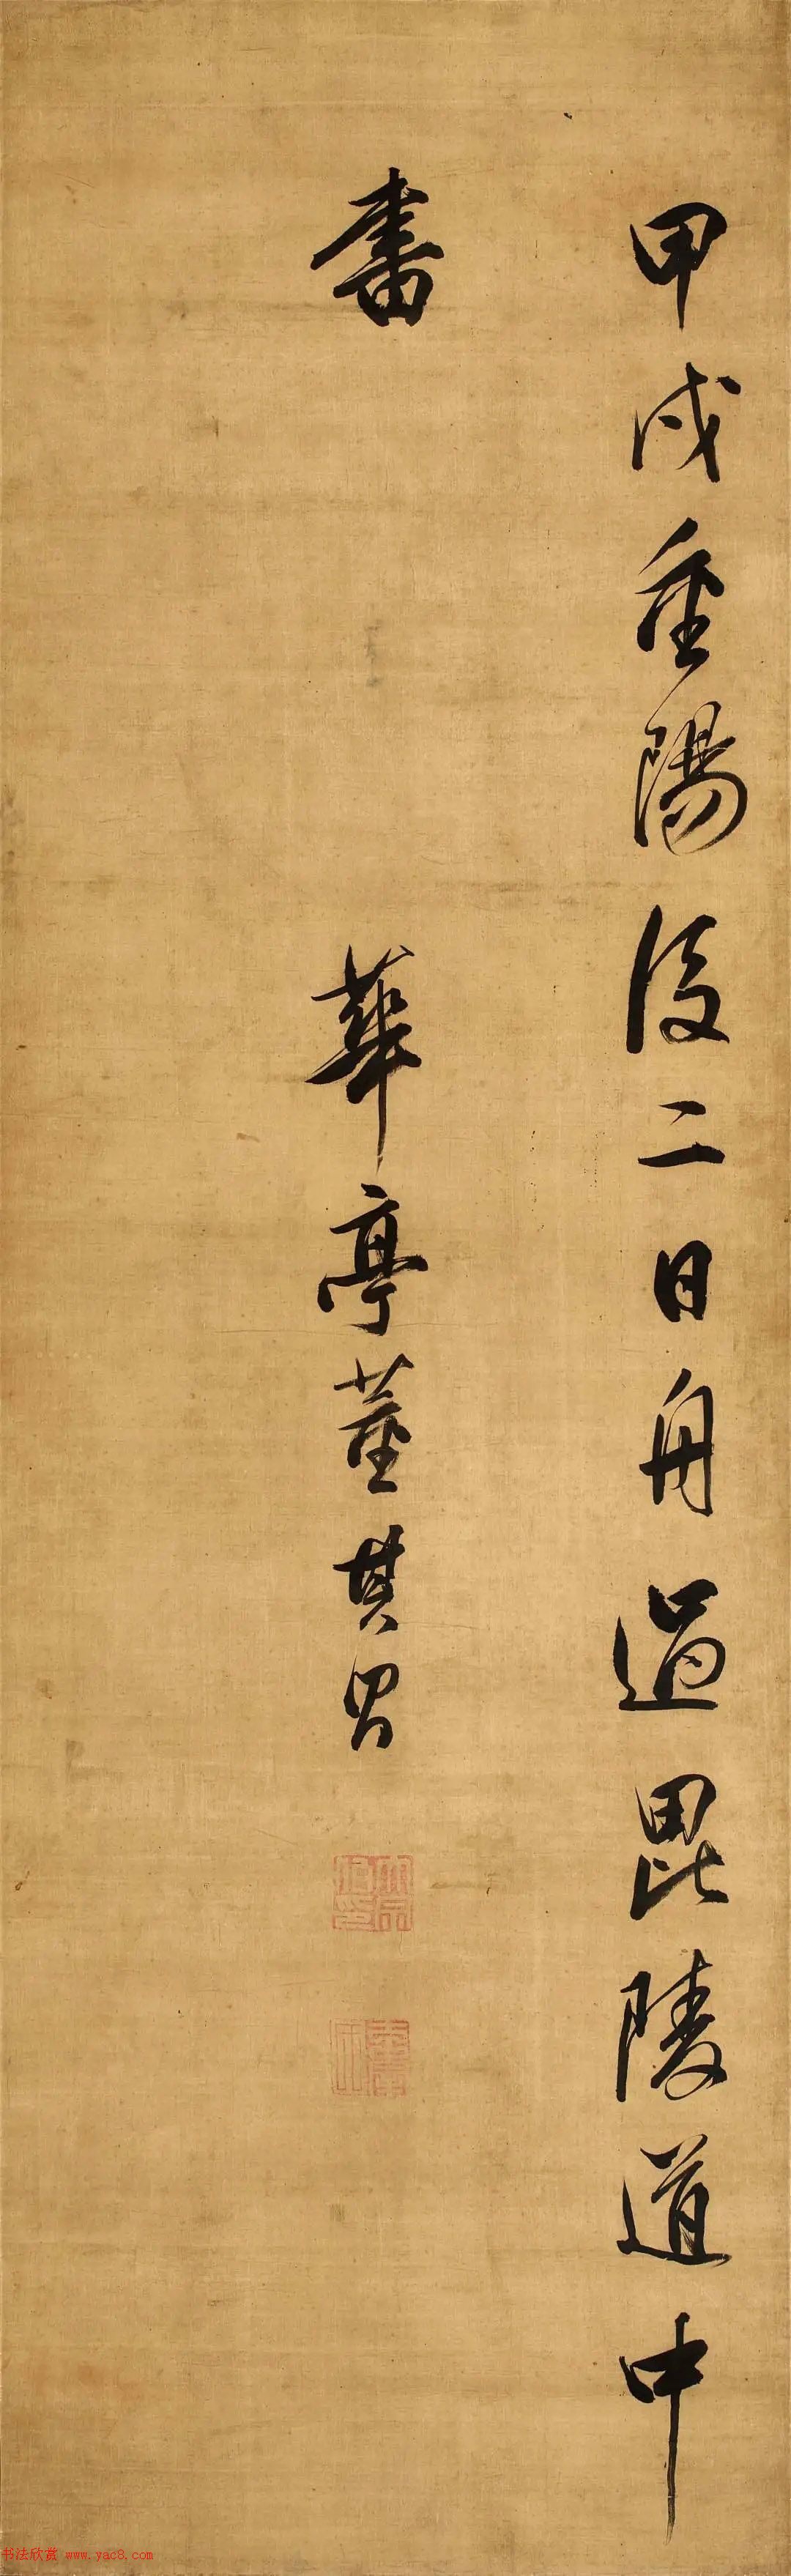 甲戌重陽後二日舟過毘陵道中
書
華亭董其昌
大宗伯印
書法欣赏 www.yac8.com